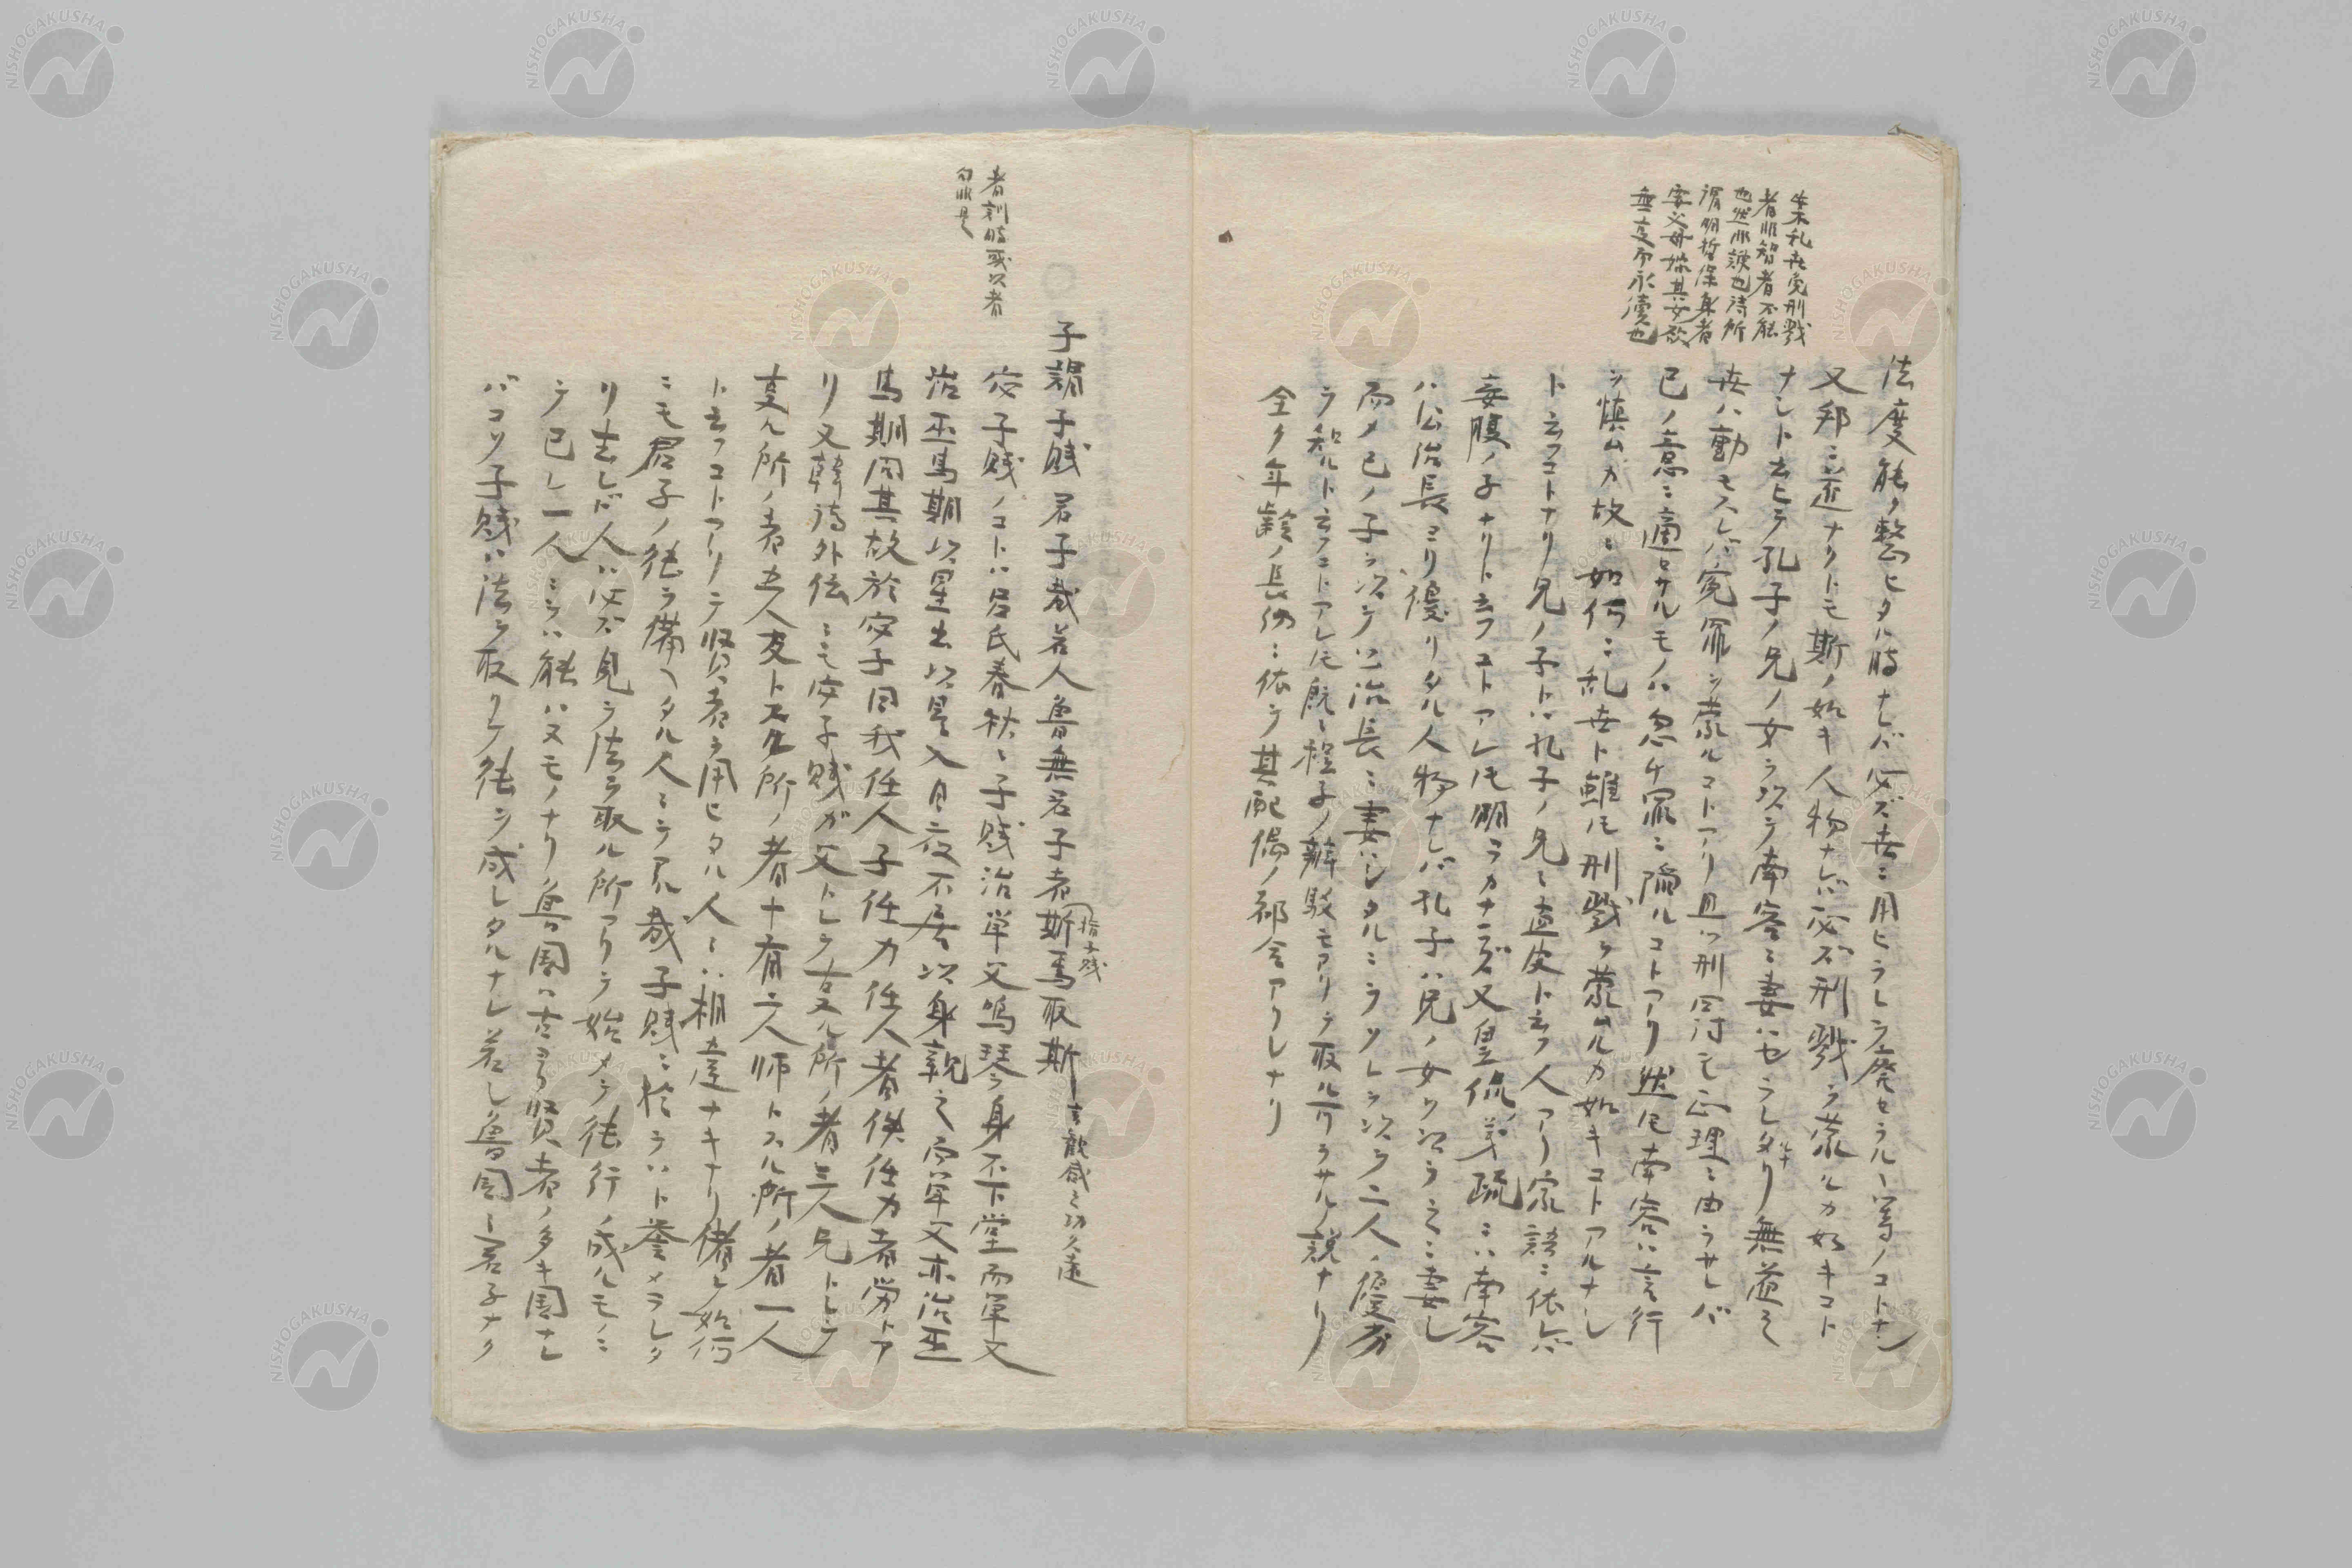 乗乱世免刑戮
者非智者不能
也然非諛也詩所
謂明哲保身者
妻父母嫁其女欲
無変而永淒也
法度能ク整ヒタル時ナレバ必ズ世ニ用ヒラレテ廃セラルヽ等ノコトナシ
又邦ニ道ナクトモ斯ノ如キ人物ナレバ必ズ刑戮ヲ蒙ルカ如キコト
ナシト云ヒテ孔子ノ兄ノ女ヲ以テ南容ニ妻ハセラレタリ無道之
世ハ動モスレバ冤罪ヲ蒙ルコトアリ且ツ刑罰モ正理ニ由ラサレバ
己ノ意ニ適ヒサルモノハ忽チ罪ニ陥ルコトアリ然ルニ南容ハ言行
ヲ慎ムカ故ニ如何ニ乱世ト雖ドモ刑戮ヲ蒙ムルカ如キコトアルナシ
ト云フコトナリ兄ノ子トハ孔子ノ兄ニ孟皮ト云フ人アリ家語ニ依レバ
妾腹ノ子ナリト云フコトアレドモ明ラカナラズ又皇侃ノ義疏ニハ南容
ハ公冶長ヨリ優リタル人物ナレバ孔子ハ兄ノ女ヲ以テ之ニ妻シ
而メ己ノ子ヲ以テ公冶長ニ妻ハシタルニテソレヲ以テ二人ノ優劣
ヲ知ルト云フコトアレドモ既ニ程子ノ辨駁モアリテ取ルニ足ラサルノ説ナリ
全ク年齢ノ長幼ニ依テ其配偶ノ都合アリシナリ
者訓時或以者
句非是
子謂子賤君子哉若人魯無君子者斯焉取斯
指子賤
宓子賤ノコトハ呂氏春秋ニ子賤治単父鳴琴身不下堂而単父
治巫馬期以星出以星入日夜不居以身親之而単父亦治巫
馬期問其故於宓子曰我任人子任力任人者佚任力者労トア
リ又韓詩外伝ニモ宓子賤ガ父トシテ事ル所ノ者三人兄トシテ
事ル所ノ者五人友トスル所ノ者十有二人師トスル所ノ者一人
ト云フコトアリテ賢者ヲ用ヒタル人ニハ相違ナキナリ偖テ如何
ニモ君子ノ徳ヲ備ヘタル人ニテアル哉子賤ニ於テハト誉メラレタ
リ去レド人ハ必ズ見テ法ヲ取ル所アリテ始メテ徳行ノ成ルモノニ
テ己レ一人ニテハ能ハヌモノナリ魯国ハ古ヨリ賢者ノ多キ国ナレ
バコソ子賤ハ法ヲ取リテ徳ヲ成シタルナレ若シ魯国ニ君子ナク